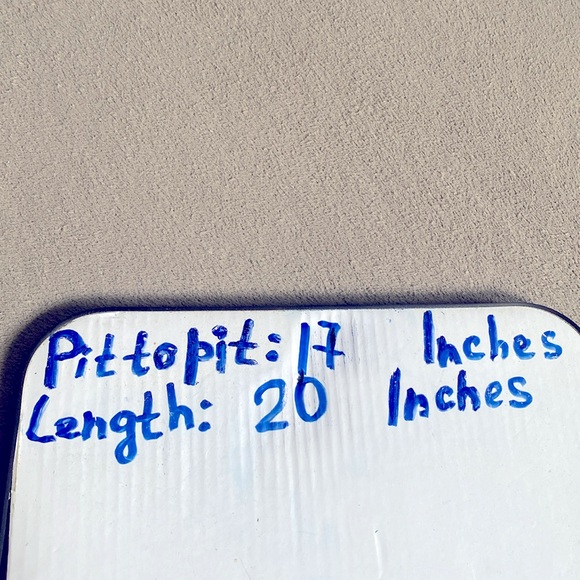 Pit to pit: 17 Inches
Length: 20 Inches